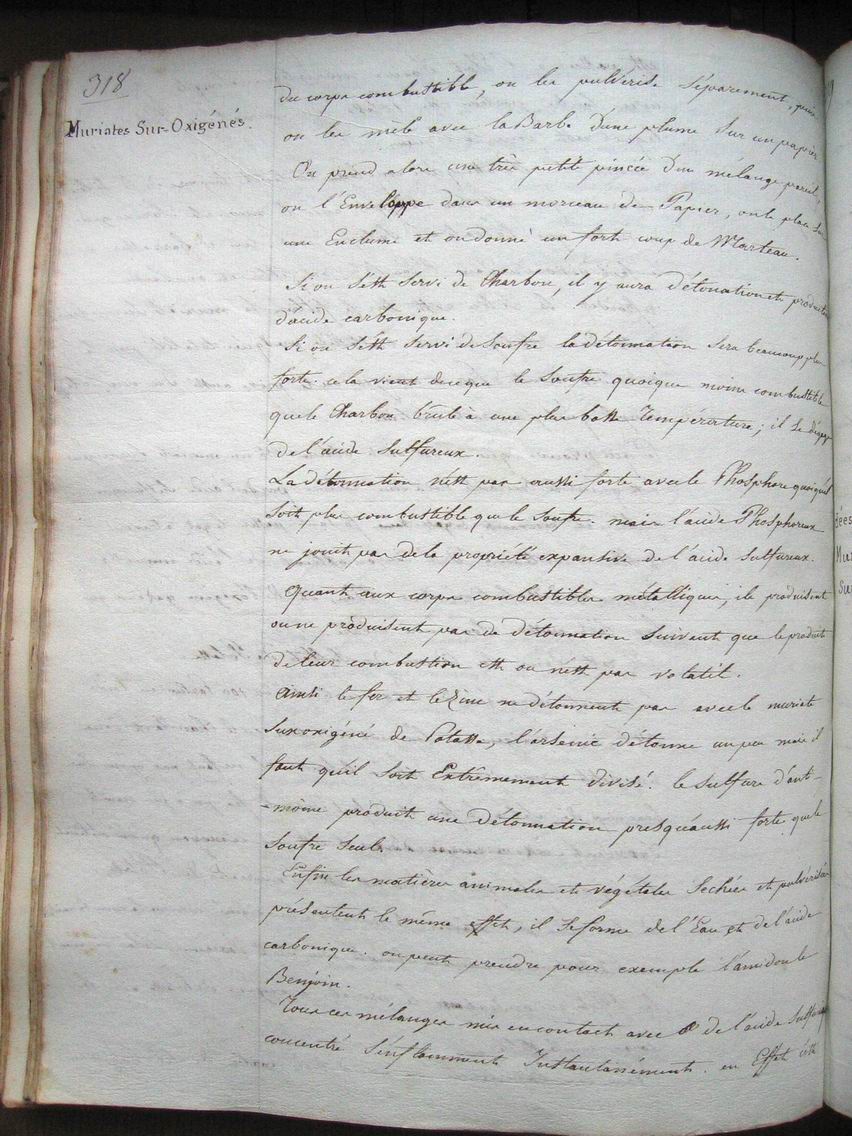 318
Muriates Sur-Oxigénés.
du corps combustible, on les pulverise séparement, puis
on les mêle avec la Barbe d'une plume sur un papier
On prend alors une très petite pincée d'un melange pareil,
on l'Enveloppe dans un morceau de Papier, on le place sur
une Enclume et on donne un fort coup de Marteau.
Si on s'est servi de Charbon, il y aura détonation et production
d'acide carbonique.
Si on s'est servi de Soufre la détonnation sera beaucoup plus
forte. cela vient de ce que le Soufre quoique moins combustible
que le Charbon brule à une plus basse Température; il se dégage
de l'acide sulfureux
La détonnation n'est pas aussi forte avec le Phosphore quoiqu'il
soit plus combustible que le soufre. mais l'acide Phosphoreux
ne jouit pas de la propriété expansive de l'acide sulfureux.
Quant aux corps combustibles métalliques, ils produisent
ou ne produisent pas de détonnation suivant que le produit
de leur combustion est ou n'est pas volatil.
Ainsi le fer et le Zinc ne détonnent pas avec le muriate
suroxigéné de Potasse, l'arsenic détonne un peu mais il
faut qu'il soit Extrêmement divisé. le sulfure d'anti-
-moine produit une détonnation presqu'aussi forte que le
soufre seul.
Enfin les matières animales et végétales sechées et pulvérisées
présentent le même effet, il se forme de l'Eau et de l'acide
carbonique. on peut prendre pour exemple l'amidon le
Benjoin.
Tous ces mélanges mis en contact avec de l'acide sulfurique
concentré s'enflamment Instantanément. en Effet cet
ées
Mur
Su